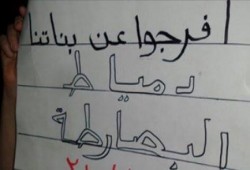 افرجوا عن بناتنا
دمياط
البصارطة